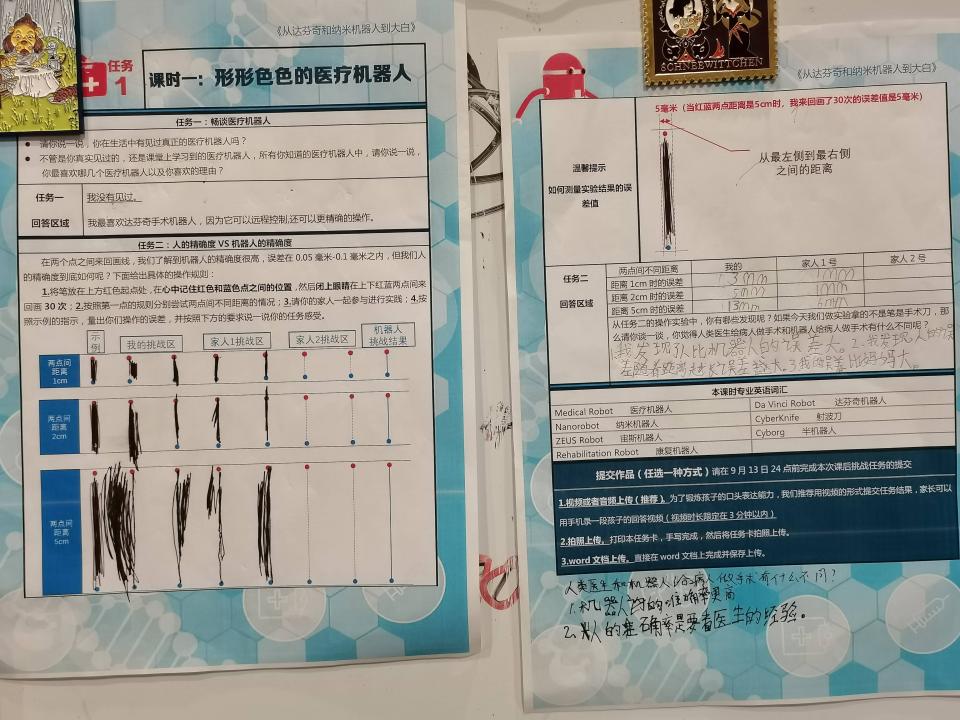 《从达芬奇和纳米机器人到大白》
任务
1
课时一：形形色色的医疗机器人
任务一：畅谈医疗机器人
● 请你说一说，你在生活中有见过真正的医疗机器人吗？
● 不管是你真实见过的，还是课堂上学习到的医疗机器人，所有你知道的医疗机器人中，请你说一说，
你最喜欢哪几个医疗机器人以及你喜欢的理由？
任务一
回答区域
我没有见过。
我最喜欢达芬奇手术机器人，因为它可以远程控制,还可以更精确的操作。
任务二：人的精确度 VS 机器人的精确度
在两个点之间来回画线，我们了解到机器人的精确度很高，误差在 0.05 毫米-0.1 毫米之内，但我们人
的精确度到底如何呢？下面给出具体的操作规则：
1.将笔放在上方红色起点处，在心中记住红色和蓝色点之间的位置，然后闭上眼睛在上下红蓝两点间来
回画 30 次；2.按照第一点的规则分别尝试两点间不同距离的情况；3.请你的家人一起参与进行实践；4.按
照示例的指示，量出你们操作的误差，并按照下方的要求说一说你的任务感受。
示例
我的挑战区
家人1挑战区
家人2挑战区
机器人
挑战结果
两点间
距离
1cm
两点间
距离
2cm
两点间
距离
5cm
《从达芬奇和纳米机器人到大白》
5毫米（当红蓝两点距离是5cm时，我来回画了30次的误差值是5毫米）
从最左侧到最右侧
之间的距离
温馨提示
如何测量实验结果的误
差值
任务二
回答区域
两点间不同距离 我的 家人 1 号 家人 2 号
距离 1cm 时的误差 3mm 1mm
距离 2cm 时的误差 5mm 1mm
距离 5cm 时的误差 13mm 6mm
从任务二的操作实验中，你有哪些发现呢？如果今天我们做实验拿的不是笔是手术刀，那
么请你谈一谈，你觉得人类医生给病人做手术和机器人给病人做手术有什么不同呢？
1我发现人比机器人的误差大。2.我发现人的误
差随着距离越长误差越大。3我的误差比妈妈大。
本课时专业英语词汇
Medical Robot 医疗机器人 Da Vinci Robot 达芬奇机器人
Nanorobot 纳米机器人 CyberKnife 射波刀
ZEUS Robot 宙斯机器人 Cyborg 半机器人
Rehabilitation Robot 康复机器人
提交作品（任选一种方式）请在 9 月 13 日 24 点前完成本次课后挑战任务的提交
1.视频或者音频上传（推荐）。为了锻炼孩子的口头表达能力，我们推荐用视频的形式提交任务结果，家长可以
用手机录一段孩子的回答视频（视频时长限定在 3 分钟以内）
2.拍照上传。打印本任务卡，手写完成，然后将任务卡拍照上传。
3.word 文档上传。直接在 word 文档上完成并保存上传。
人类医生和机器人给病人做手术有什么不同？
1.机器人的准确率更高
2.人的准确率是要看医生的经验。
SCHNEEWITTCHEN